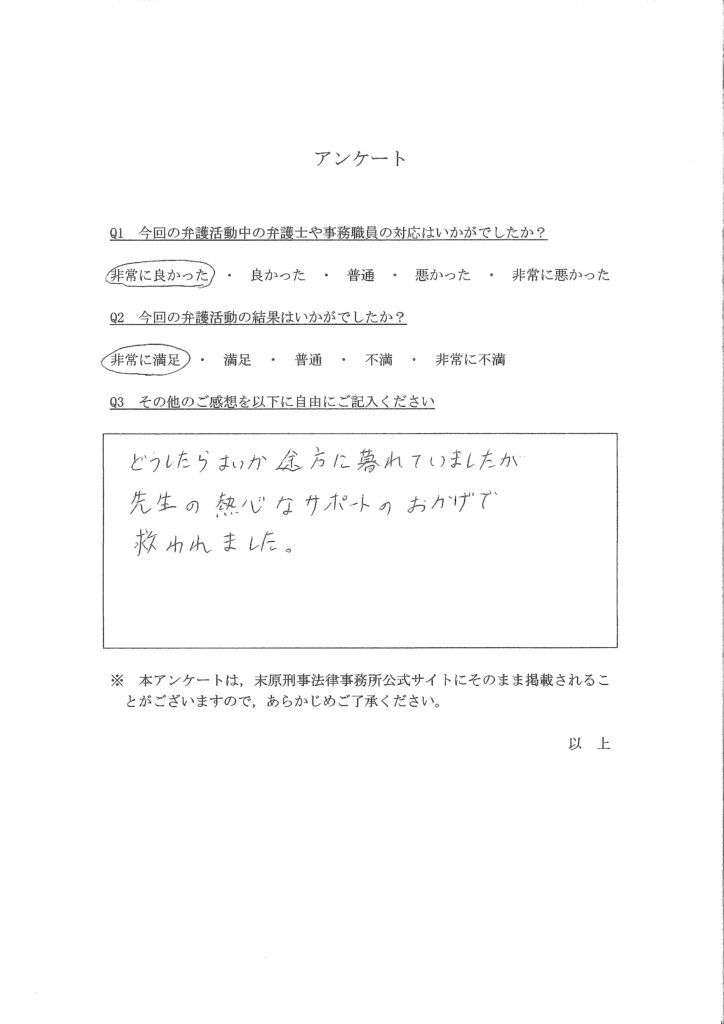 アンケート
Q1 今回の弁護活動中の弁護士や事務職員の対応はいかがでしたか？
非常に良かった ・ 良かった ・ 普通 ・ 悪かった ・ 非常に悪かった
Q2 今回の弁護活動の結果はいかがでしたか？
非常に満足 ・ 満足 ・ 普通 ・ 不満 ・ 非常に不満
Q3 その他のご感想を以下に自由にご記入ください
どうしたらよいか途方に暮れていましたが
先生の熱心なサポートのおかげで
救われました。
※ 本アンケートは，末原刑事法律事務所公式サイトにそのまま掲載されるこ
とがございますので，あらかじめご了承ください。
以 上